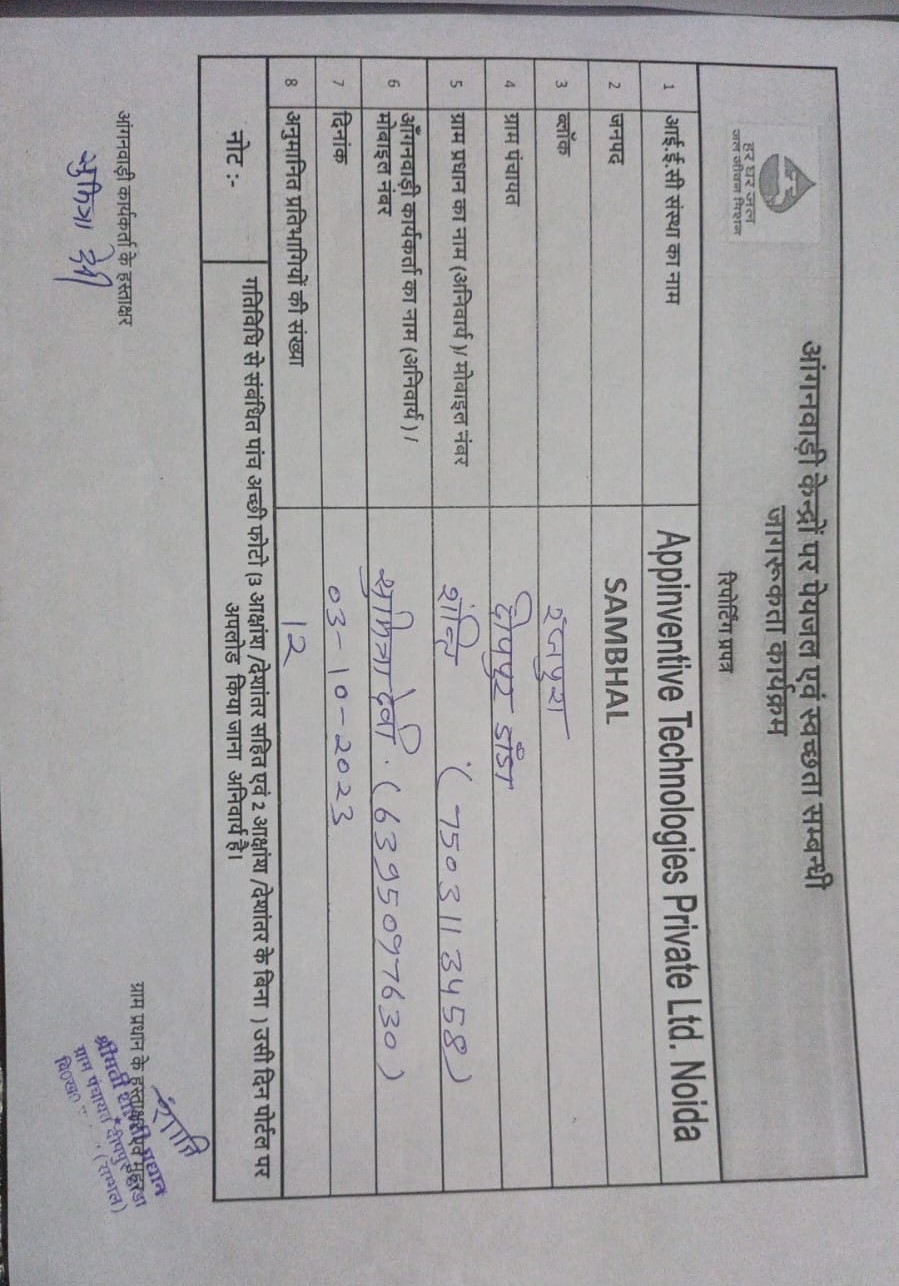 हर घर जल
जल जीवन मिशन
आंगनवाड़ी केन्द्रों पर पेयजल एवं स्वच्छता सम्बन्धी
जागरूकता कार्यक्रम
रिपोर्टिंग प्रपत्र
1 आई.ई.सी संस्था का नाम Appinventive Technologies Private Ltd. Noida
2 जनपद SAMBHAL
3 ब्लॉक रजपुरा
4 ग्राम पंचायत दीपपुर डांडा
5 ग्राम प्रधान का नाम (अनिवार्य )/ मोबाइल नंबर शांति (7503113458)
6 आँगनवाड़ी कार्यकर्ता का नाम (अनिवार्य ) /
मोबाइल नंबर सुमित्रा देवी. (6395097630)
7 दिनांक 03-10-2023
8 अनुमानित प्रतिभागियों की संख्या 12
नोट :- गतिविधि से संबंधित पांच अच्छी फोटो (3 आक्षांश /देशांतर सहित एवं 2 आक्षांश /देशांतर के बिना ) उसी दिन पोर्टल पर
अपलोड किया जाना अनिवार्य है।
आंगनवाड़ी कार्यकर्ता के हस्ताक्षर
सुमित्रा देवी
शान्ति
ग्राम प्रधान के हस्ताक्षर एवं मुहर
श्रीमती प्रधान
ग्राम पंचायत
वि०ख० (सम्भल)